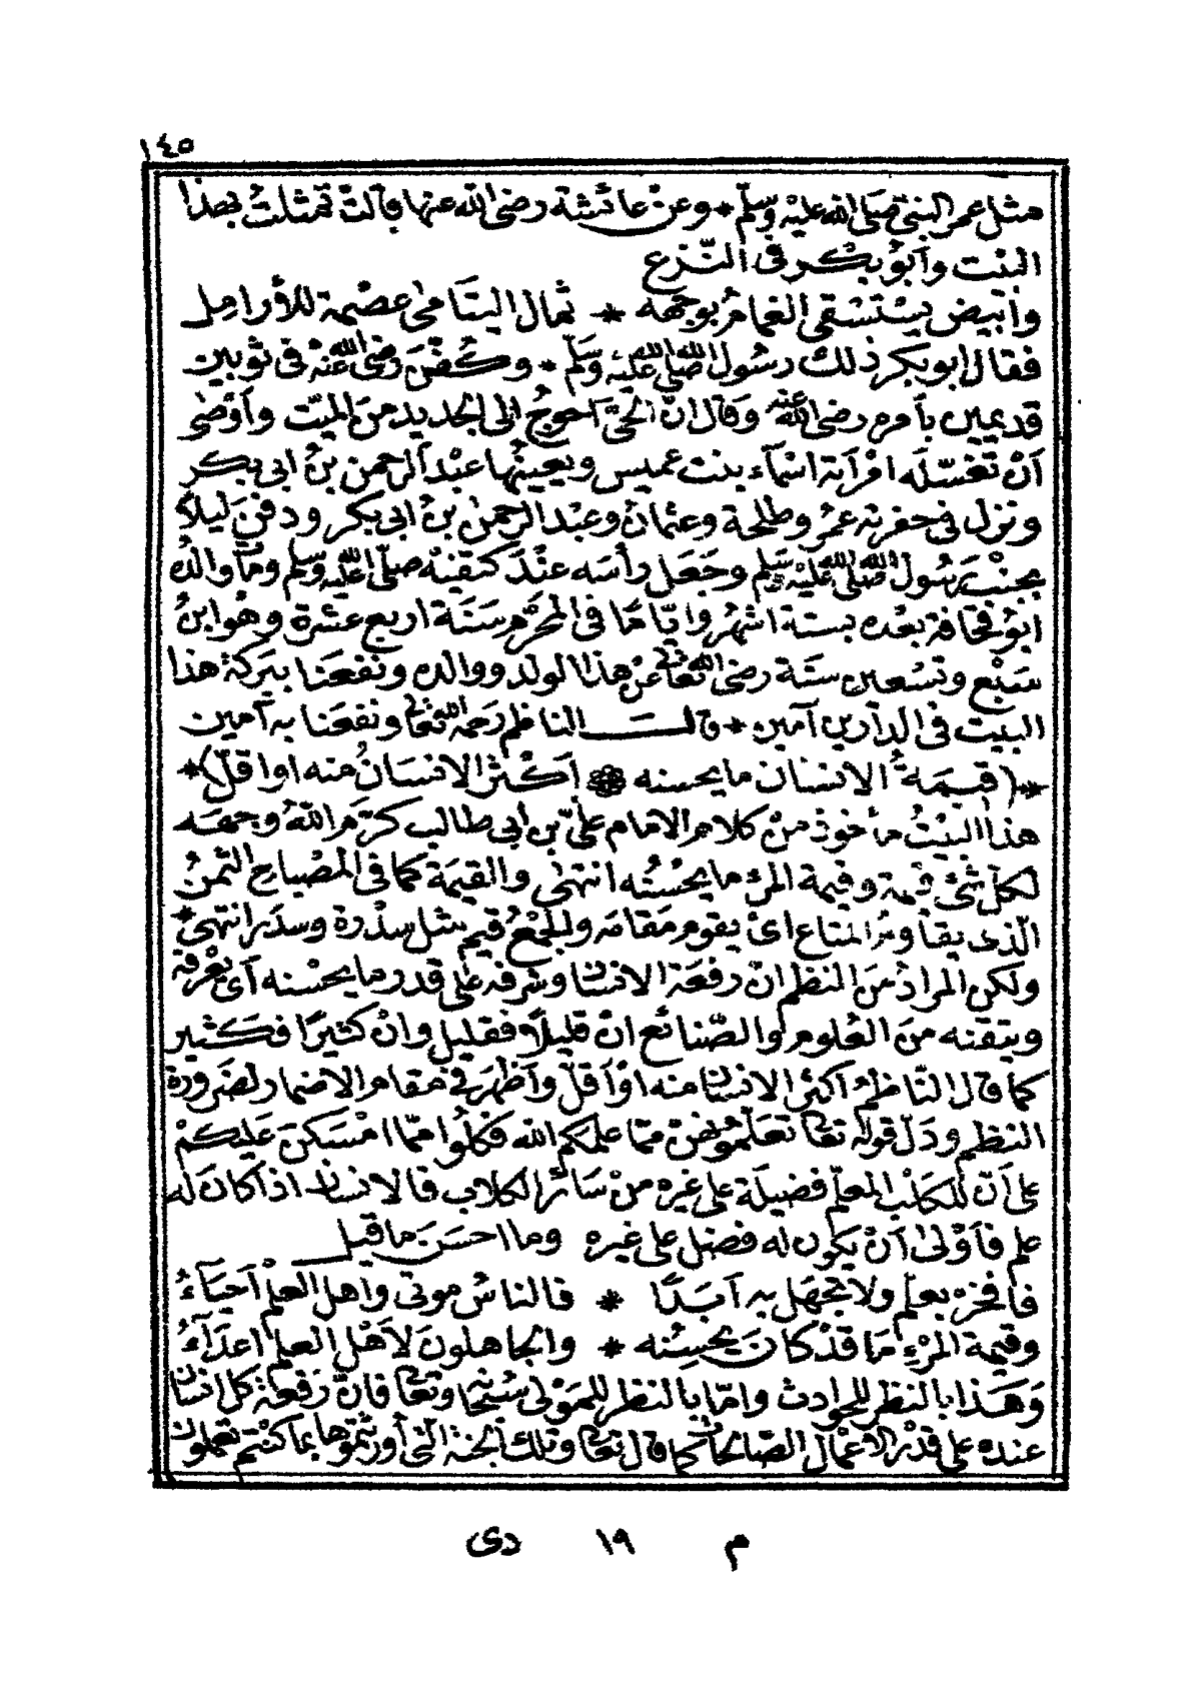 ١٤٥
مثل عمر النبي صلى الله عليه وسلم * وعن عائشة رضى الله عنها قالت تمثلت بهذا
البيت وابو بكر فى النزع
وابيض يستسقى الغمام بوجهه * ثمال اليتامى عصمة للأرامل
فقال ابو بكر ذلك رسول الله صلى الله عليه وسلم * وكفن رضى الله عنه فى ثوبين
قديمين بأمره رضى الله عنه وقال ان الحى أحوج الى الجديد من الميت وأوصى
أن تغسله امرأته اسمآء بنت عميس ويعينها عبد الرحمن بن ابى بكر
ونزل فى حفرته عمر وطلحة وعثمان وعبد الرحمن بن ابى بكر ودفن ليلاً
بجنب رسول الله صلى الله عليه وسلم وجعل رأسه عند كتفيه صلى الله عليه وسلم ومات والده
ابو قحافة بعده بستة اشهر وايّاما فى المحرم سنة اربع عشرة وهو ابن
سبع وتسعين سنة رضى الله تعالى عن هذا الولد ووالده ونفعنا ببركة هذا
البيت فى الدارين آمين * قال الناظم رحمه الله تعالى ونفعنا به آمين
*(قيمة الانسان ما يحسنه * أكثر الانسان منه او اقل)*
هذا البيت مأخوذ من كلام الامام على بن ابى طالب كرّم الله وجهه
لكل شئ قيمة وقيمة المرء ما يحسنه انتهى والقيمة كما فى المصباح الثمن
الذى يقاوم المتاع اى يقوم مقامه والجمع قيم مثل سدرة وسدر انتهى *
ولكن المراد من النظم ان رفعة الانسان وشرفه على قدر ما يحسنه أى يعرفه
ويتقنه من العلوم والصنائع ان قليلاً فقليل وان كثيرًا فكثير
كما قال الناظم أكثر الانسان منه او أقل وأظهر فى مقام الاضمار لضرورة
النظم ودل قوله تعالى تعلمونهن مما علمكم الله فكلوا مما امسكن عليكم
على أن للكلب المعلم فضيلة على غيره من سائر الكلاب فالانسان اذا كان له
علم فأولى أن يكون له فضل على غيره وما احسن ما قيل
فافخر بعلم ولا تجهل به أبدًا * فالناس موتى واهل العلم أحياء
وقيمة المرء ما قد كان يحسنه * والجاهلون لأهل العلم اعداء
وهذا بالنظر للحوادث وامّا بالنظر للمولى سبحانه وتعالى فان رفعة كل انسان
عنده على قدر الأعمال الصالحات كما قال تعالى وتلك الجنة التى أورثتموها بما كنتم تعملون
م ١٩ دى